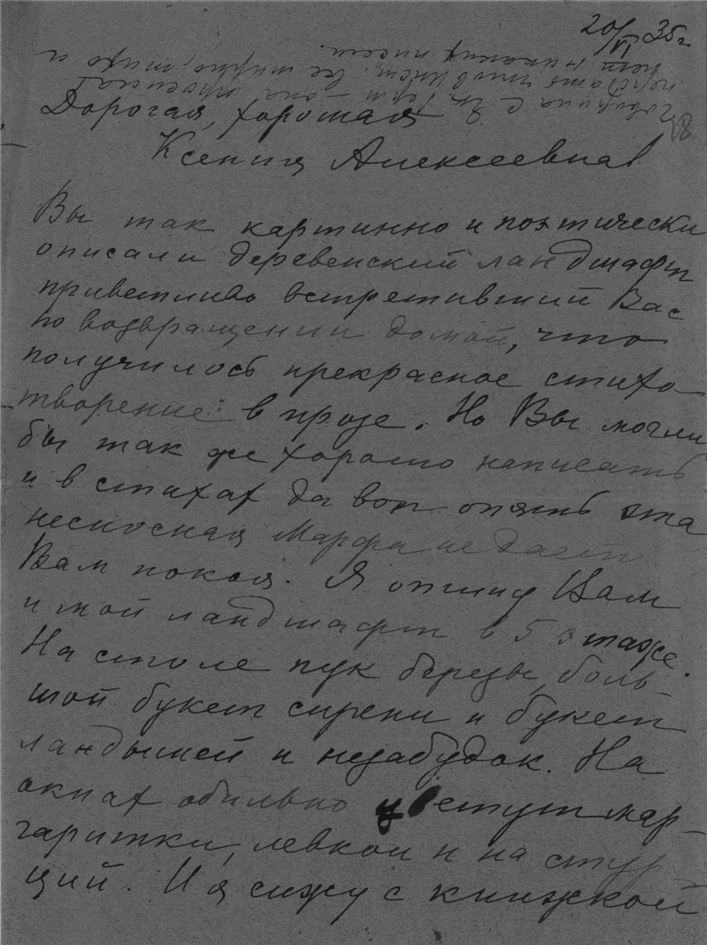 20/VI 35 г.
Дорогая, хорошая
Ксения Алексеевна
Вы так картинно и поэтически
описали деревенский ландшафт
приветливо встретивший Вас
по возвращении домой, что
получилось прекрасное стихо-
творение в прозе. Но Вы могли
бы так же хорошо написать
и в стихах да вот опять эта
несносная Марфа не дает
Вам покоя. Я опишу Вам
и мой ландшафт в 5 этаже.
На столе пук березы, боль-
шой букет сирени и букет
ландышей и незабудок. На
окнах обильно цветут мар-
гаритки, левкои и настур-
ций. И я сижу с книжкой
нет никаких писем.
все мирно, тихо и